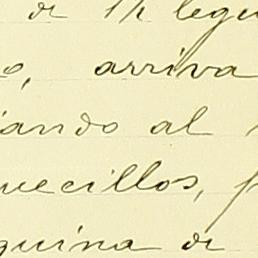 de 1½ legu
o, arriva
iando al
uecillos, p
quina de